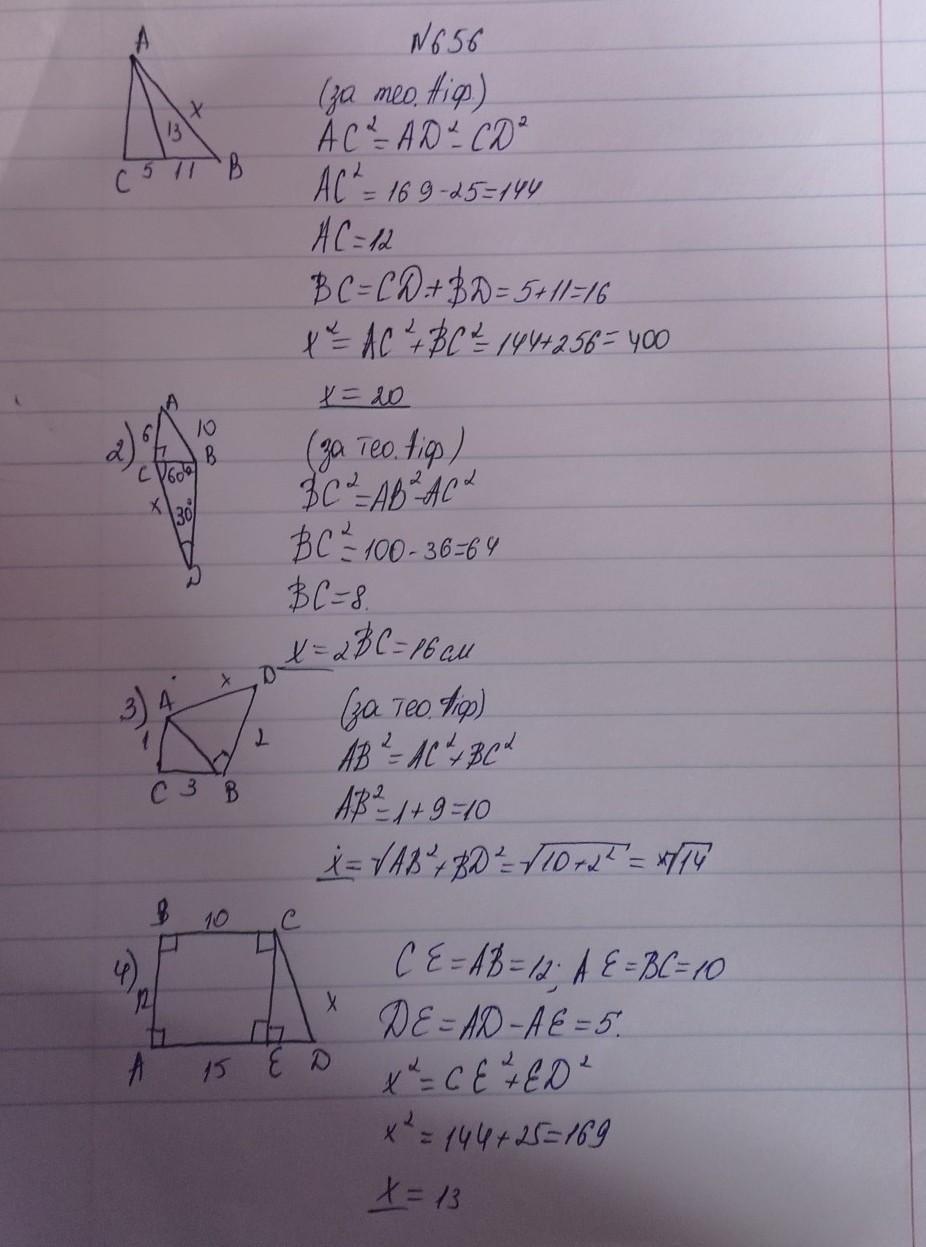 N656
A
(за тео. Піф.)
x
13
AC² = AD² - CD²
C 5 11 B
AC² = 169 - 25 = 144
AC = 12
BC = CD + BD = 5 + 11 = 16
x² = AC² + BC² = 144 + 256 = 400
x = 20
2)
A
6 10
C 60° B
x 30°
D
(за тео. Піф)
BC² = AB² - AC²
BC² = 100 - 36 = 64
BC = 8.
x = 2BC = 16 см
3)
A x D
1 2
C 3 B
(за тео. Піф)
AB² = AC² + BC²
AB² = 1 + 9 = 10
x = √AB² + BD² = √10 + 2² = √14
4)
B 10 C
12 x
A 15 E D
CE = AB = 12; AE = BC = 10
DE = AD - AE = 5.
x² = CE² + ED²
x² = 144 + 25 = 169
x = 13